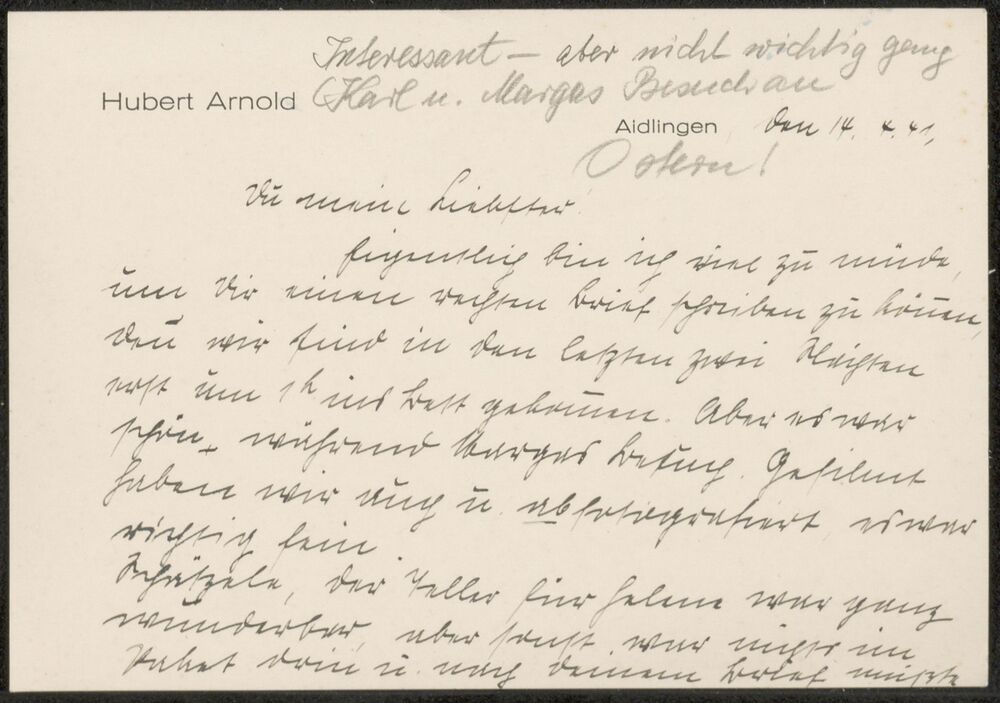 Interessant – aber nicht wichtig genug
(Karl u. Margas Besuch an
Hubert Arnold
Aidlingen, den 14. 4. 41,
Ostern!
Du mein Liebster!
Eigentlich bin ich viel zu müde,
um Dir einen rechten Brief schreiben zu können,
denn wir sind in den letzten zwei Nächten
erst um 1h ins Bett gekommen. Aber es war
schön, während Margas Besuch. Gefilmt
haben wir auch u. abfotografiert, es war
richtig fein.
Schätzele, der Teller für Helene war ganz
wunderbar, aber sonst war nichts im
Paket drin u. nach Deinem Brief müsste